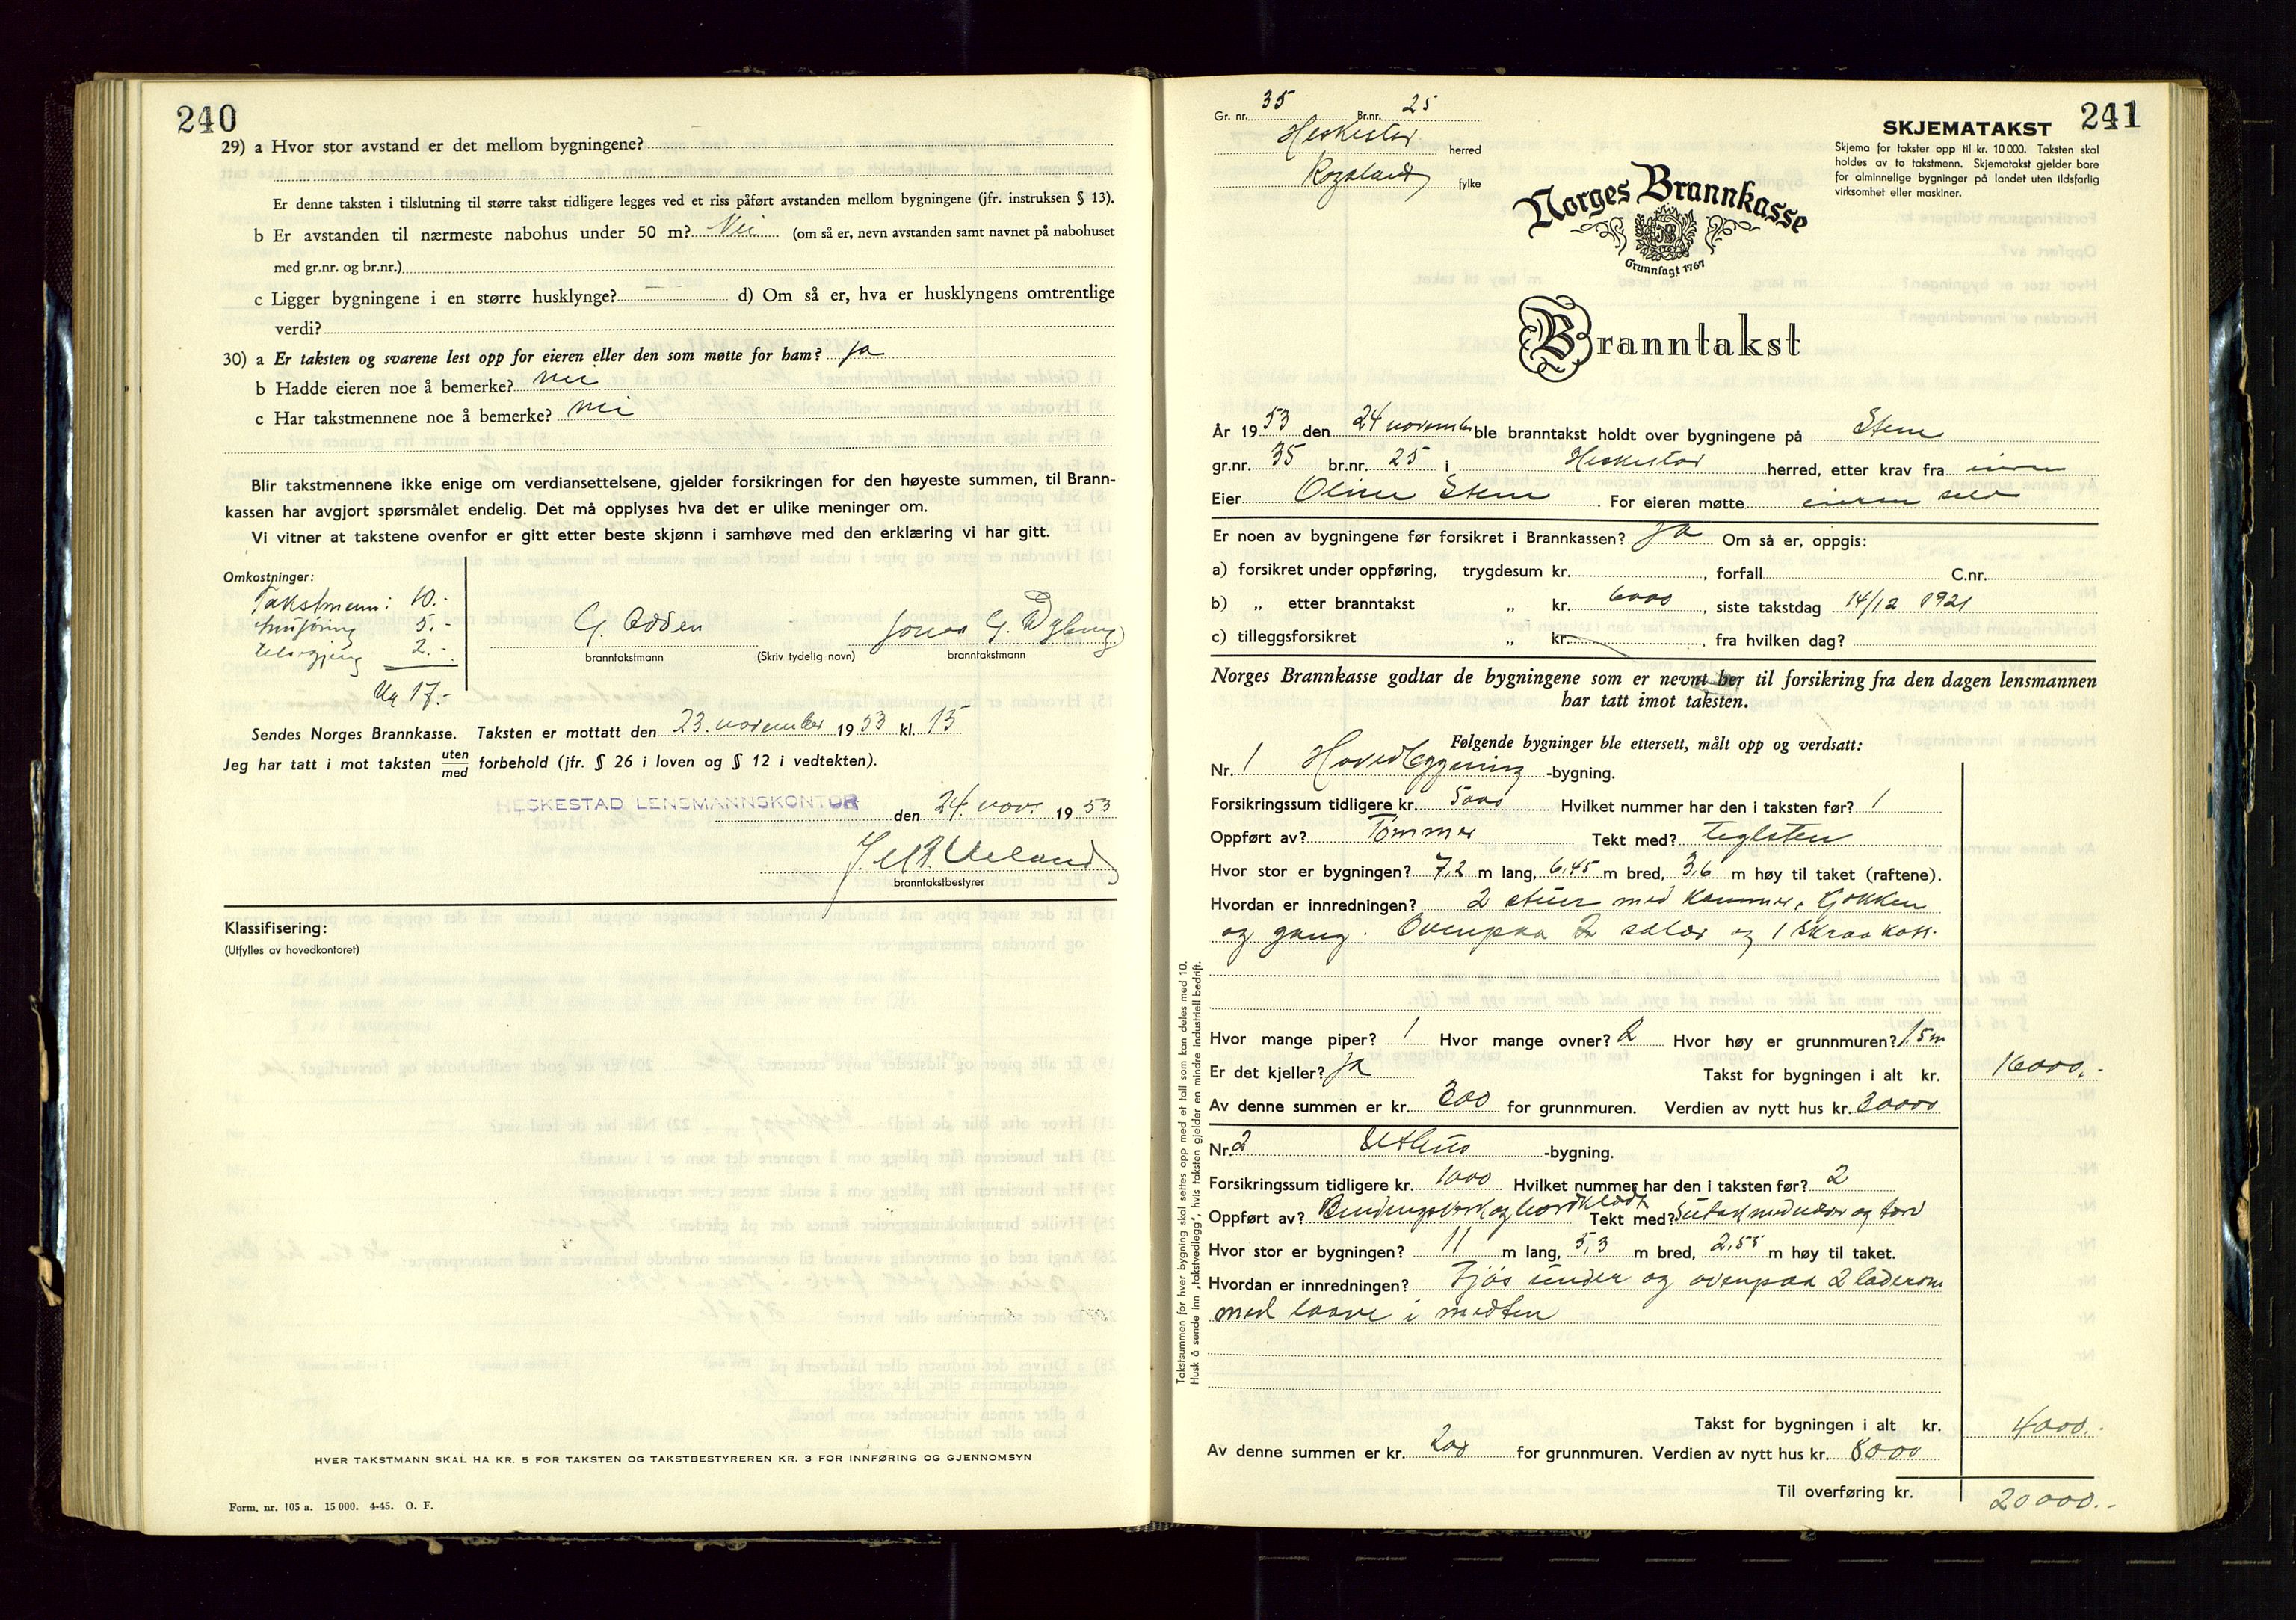 240
29) a Hvor stor avstand er det mellom bygningene?
Er denne taksten i tilslutning til større takst tidligere legges ved et riss påført avstanden mellom bygningene (jfr. instruksen § 13).
b Er avstanden til nærmeste nabohus under 50 m? Nei (om så er, nevn avstanden samt navnet på nabohuset
med gr.nr. og br.nr.)
c Ligger bygningene i en større husklynge? — d) Om så er, hva er husklyngens omtrentlige
verdi?
30) a Er taksten og svarene lest opp for eieren eller den som møtte for ham? ja
b Hadde eieren noe å bemerke? nei
c Har takstmennene noe å bemerke? nei
Blir takstmennene ikke enige om verdiansettelsene, gjelder forsikringen for den høyeste summen, til Brann-
kassen har avgjort spørsmålet endelig. Det må opplyses hva det er ulike meninger om.
Vi vitner at takstene ovenfor er gitt etter beste skjønn i samhøve med den erklæring vi har gitt.
Omkostninger:
Takstmenn: 10.-
Innføring 5.-
2.-
17.-
G. Odden Jonas G.
branntakstmann (Skriv tydelig navn) branntakstmann
Sendes Norges Brannkasse. Taksten er mottatt den 23. november 1953 kl. 15
Jeg har tatt i mot taksten uten/med forbehold (jfr. § 26 i loven og § 12 i vedtekten).
HESKESTAD LENSMANNSKONTOR den 24. nov. 1953
Ueland
branntakstbestyrer
Klassifisering:
(Utfylles av hovedkontoret)
HVER TAKSTMANN SKAL HA KR. 5 FOR TAKSTEN OG TAKSTBESTYREREN KR. 3 FOR INNFØRING OG GJENNOMSYN
Form. nr. 105 a. 15 000. 4-45. O. F.
241
Gr. nr. 35 Br.nr. 25
Heskestad herred
Rogaland fylke
SKJEMATAKST
Skjema for takster opp til kr. 10 000. Taksten skal
holdes av to takstmenn. Skjematakst gjelder bare
for alminnelige bygninger på landet uten ildsfarlig
virksomhet eller maskiner.
Norges Brannkasse
Grunnlagt 1767
Branntakst
År 1953 den 24 november ble branntakst holdt over bygningene på Stene
gr.nr. 35 br.nr. 25 i Heskestad herred, etter krav fra eieren
Eier Oline Stene. For eieren møtte eieren selv
Er noen av bygningene før forsikret i Brannkassen? Ja Om så er, oppgis:
a) forsikret under oppføring, trygdesum kr. , forfall C.nr.
b) „ etter branntakst „ kr. 6000, siste takstdag 14/12 1921
c) tilleggsforsikret „ kr. , fra hvilken dag?
Norges Brannkasse godtar de bygningene som er nevnt her til forsikring fra den dagen lensmannen
har tatt imot taksten.
Følgende bygninger ble ettersett, målt opp og verdsatt:
Nr. 1 Hovedbygning -bygning.
Forsikringssum tidligere kr. 5000 Hvilket nummer har den i taksten før? 1
Oppført av? Tømmer Tekt med? teglsten
Hvor stor er bygningen? 7,2 m lang, 6,45 m bred, 3,6 m høy til taket (raftene).
Hvordan er innredningen? 2 stuer med kammer, kjøkken
og gang. Ovenpaa 2 saler og 1 skraakott.
Hvor mange piper? 1 Hvor mange ovner? 2 Hvor høy er grunnmuren? 1,5m
Er det kjeller? Ja Takst for bygningen i alt kr. 16000.-
Av denne summen er kr. 800 for grunnmuren. Verdien av nytt hus kr. 30000
Nr. 2 Uthus -bygning.
Forsikringssum tidligere kr. 1000 Hvilket nummer har den i taksten før? 2
Oppført av? Bindingsverk og bordklædt Tekt med? Sutak med never og torv
Hvor stor er bygningen? 11 m lang, 5,3 m bred, 2,55 m høy til taket.
Hvordan er innredningen? Fjøs under og ovenpaa 2 laderom
med laave i midten
Takst for bygningen i alt kr. 4000.-
Av denne summen er kr. 200 for grunnmuren. Verdien av nytt hus kr. 8000
Til overføring kr. 20000.-
Takstsummen for hver bygning skal settes opp med et tall som kan deles med 10.
Husk å sende inn „takstvedlegg", hvis taksten gjelder en mindre industriell bedrift.